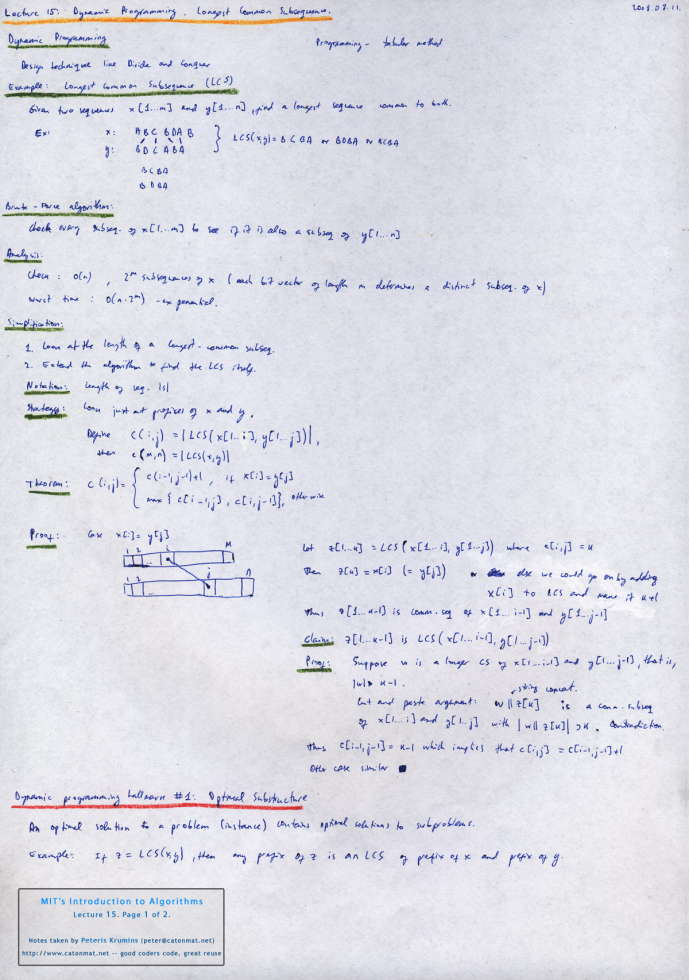 Lecture 15: Dynamic Programming. Longest Common Subsequence.
2008.02.11.
Dynamic Programming
Programming - tabular method
Design technique like Divide and Conquer
Example: Longest Common Subsequence (LCS)
Given two sequences x[1...m] and y[1...n], find a longest sequence common to both.
Ex: x: A B C B D A B
y: B D C A B A
} LCS(x,y) = B C B A or B D B A or B C B A
B C B A
B D B A
Brute-Force algorithm:
check every subseq. of x[1...m] to see if it is also a subseq of y[1...n]
Analysis:
Check: O(n), 2^m subsequences of x (each bit vector of length m determines a distinct subseq. of x)
worst time: O(n·2^m) - exponential.
Simplification:
1. Look at the length of a longest-common subseq.
2. Extend the algorithm to find the LCS itself.
Notation: length of seq. |s|
Strategy: Look just at prefixes of x and y.
Define c(i,j) = |LCS(x[1...i], y[1...j])|,
then c(m,n) = |LCS(x,y)|
Theorem: c(i,j) = { c(i-1,j-1)+1, if x[i]=y[j]
max{c[i-1,j], c[i,j-1]}, otherwise
Proof: Case x[i]=y[j]
1 2 i m
...
1 2 j n
...
Let z[1...k] = LCS(x[1...i], y[1...j]) where c[i,j] = k
Then z[k] = x[i] (= y[j]) or else we could go on by adding
x[i] to LCS and make it k+1
Thus z[1...k-1] is comm. seq of x[1...i-1] and y[1...j-1]
Claim: z[1...k-1] is LCS(x[1...i-1], y[1...j-1])
Proof: Suppose w is a longer CS of x[1...i-1] and y[1...j-1], that is,
|w| > k-1.
string concat.
Cut and paste argument: w || z[k] is a comm. subseq
of x[1...i] and y[1...j] with |w || z[k]| > k. Contradiction.
Thus c[i-1,j-1] = k-1 which implies that c[i,j] = c[i-1,j-1]+1
Other case similar ■
Dynamic programming hallmark #1: Optimal Substructure
An optimal solution to a problem (instance) contains optimal solutions to subproblems.
Example: If z = LCS(x,y), then any prefix of z is an LCS of prefix of x and prefix of y.
MIT's Introduction to Algorithms
Lecture 15. Page 1 of 2.
Notes taken by Peteris Krumins (peter@catonmat.net)
http://www.catonmat.net -- good coders code, great reuse